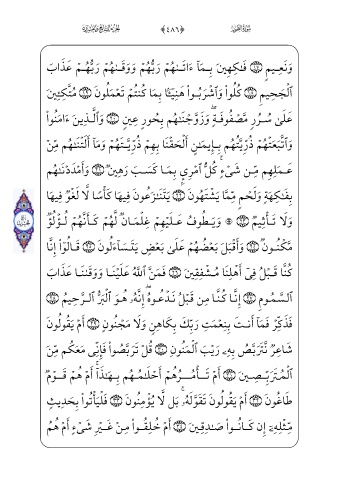 سُورَةُ الطُّورِ ﴿٤٨٦﴾ الجُزْءُ السَّابِعُ وَالعِشْرُونَ
وَنَعِيمٍ ۝ فَٰكِهِينَ بِمَآ ءَاتَىٰهُمْ رَبُّهُمْ وَوَقَىٰهُمْ رَبُّهُمْ عَذَابَ
ٱلْجَحِيمِ ۝ كُلُوا۟ وَٱشْرَبُوا۟ هَنِيٓـًٔۢا بِمَا كُنتُمْ تَعْمَلُونَ ۝ مُتَّكِـِٔينَ
عَلَىٰ سُرُرٍ مَّصْفُوفَةٍ ۖ وَزَوَّجْنَٰهُم بِحُورٍ عِينٍ ۝ وَٱلَّذِينَ ءَامَنُوا۟
وَٱتَّبَعَتْهُمْ ذُرِّيَّتُهُم بِإِيمَٰنٍ أَلْحَقْنَا بِهِمْ ذُرِّيَّتَهُمْ وَمَآ أَلَتْنَٰهُم مِّنْ
عَمَلِهِم مِّن شَىْءٍ ۚ كُلُّ ٱمْرِئٍۭ بِمَا كَسَبَ رَهِينٌ ۝ وَأَمْدَدْنَٰهُم
بِفَٰكِهَةٍ وَلَحْمٍ مِّمَّا يَشْتَهُونَ ۝ يَتَنَٰزَعُونَ فِيهَا كَأْسًا لَّا لَغْوٌ فِيهَا
وَلَا تَأْثِيمٌ ۝ ۞ وَيَطُوفُ عَلَيْهِمْ غِلْمَانٌ لَّهُمْ كَأَنَّهُمْ لُؤْلُؤٌ
مَّكْنُونٌ ۝ وَأَقْبَلَ بَعْضُهُمْ عَلَىٰ بَعْضٍ يَتَسَآءَلُونَ ۝ قَالُوٓا۟ إِنَّا
كُنَّا قَبْلُ فِىٓ أَهْلِنَا مُشْفِقِينَ ۝ فَمَنَّ ٱللَّهُ عَلَيْنَا وَوَقَىٰنَا عَذَابَ
ٱلسَّمُومِ ۝ إِنَّا كُنَّا مِن قَبْلُ نَدْعُوهُ ۖ إِنَّهُۥ هُوَ ٱلْبَرُّ ٱلرَّحِيمُ ۝
فَذَكِّرْ فَمَآ أَنتَ بِنِعْمَتِ رَبِّكَ بِكَاهِنٍ وَلَا مَجْنُونٍ ۝ أَمْ يَقُولُونَ
شَاعِرٌ نَّتَرَبَّصُ بِهِۦ رَيْبَ ٱلْمَنُونِ ۝ قُلْ تَرَبَّصُوا۟ فَإِنِّى مَعَكُم مِّنَ
ٱلْمُتَرَبِّصِينَ ۝ أَمْ تَأْمُرُهُمْ أَحْلَٰمُهُم بِهَٰذَآ ۚ أَمْ هُمْ قَوْمٌ
طَاغُونَ ۝ أَمْ يَقُولُونَ تَقَوَّلَهُۥ ۚ بَل لَّا يُؤْمِنُونَ ۝ فَلْيَأْتُوا۟ بِحَدِيثٍ
مِّثْلِهِۦٓ إِن كَانُوا۟ صَٰدِقِينَ ۝ أَمْ خُلِقُوا۟ مِنْ غَيْرِ شَىْءٍ أَمْ هُمُ